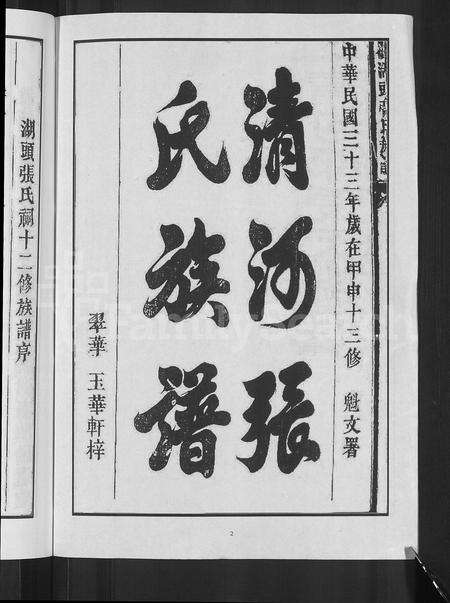 湖頭張氏族譜
中華民國三十三年歲在甲申十三修 魁文署
清河張
氏族譜
翠華 玉華軒梓
2
湖頭張氏祠十二修族譜序